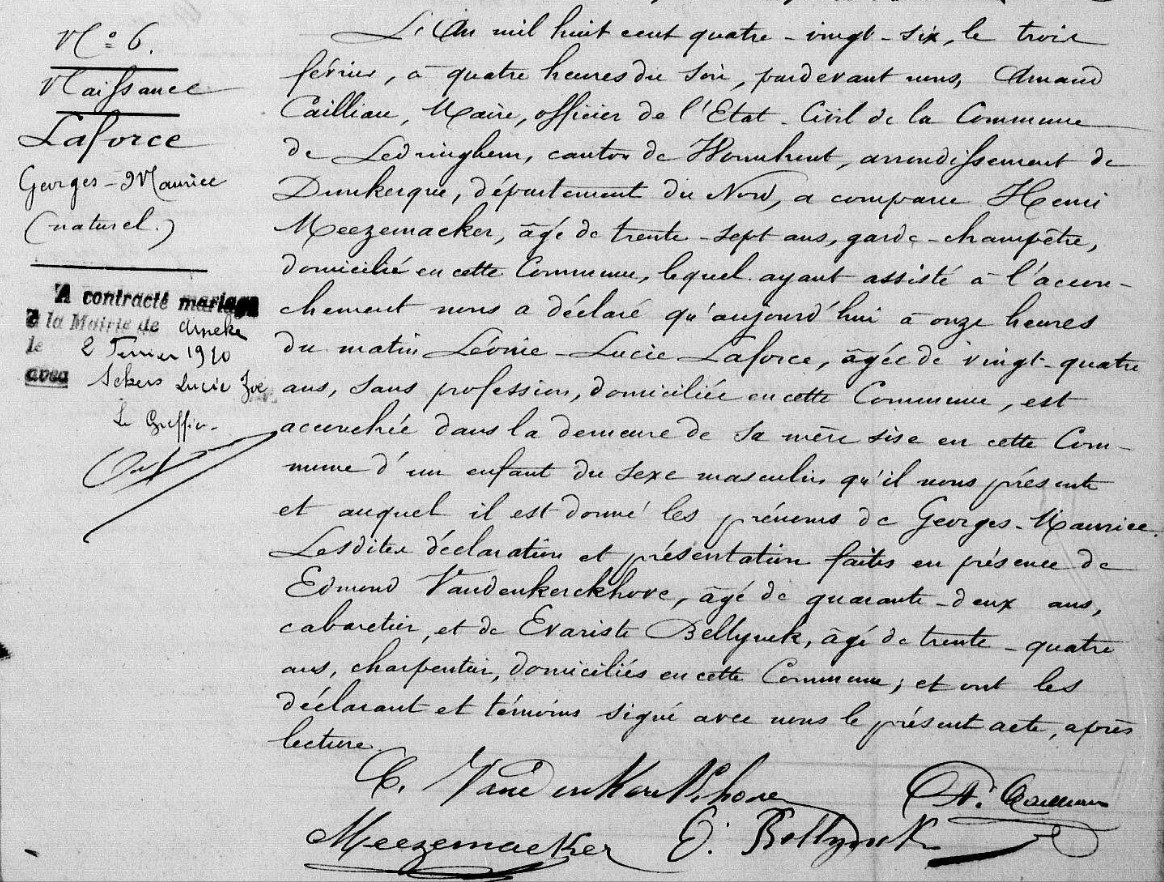 N° 6.
Naissance
Laforce
Georges-Maurice
(naturel.)
A contracté mariage
à la Mairie de Arneke
le 2 Février 1910
avec Sekers Lucie Zoé
Le Greffier
L'An mil huit cent quatre-vingt-six, le trois
février, à quatre heures du soir, pardevant nous, Amand
Cailliau, Maire, officier de l'Etat-Civil de la Commune
de Ledringhem, canton de Wormhout, arrondissement de
Dunkerque, département du Nord, a comparu Henri
Meezemaeker, âgé de trente-sept ans, garde-champêtre,
domicilié en cette Commune, lequel ayant assisté à l'accou-
chement nous a déclaré qu'aujourd'hui à onze heures
du matin Léonie-Lucie Laforce, âgée de vingt-quatre
ans, sans profession, domiciliée en cette Commune, est
accouchée dans la demeure de sa mère sise en cette Com-
mune d'un enfant du sexe masculin qu'il nous présente
et auquel il est donné les prénoms de Georges-Maurice.
Lesdites déclaration et présentation faites en présence de
Edmond Vandenkerckhove, âgé de quarante-deux ans,
cabaretier, et de Evariste Bellynck, âgé de trente-quatre
ans, charpentier, domiciliés en cette Commune; et ont les
déclarant et témoins signé avec nous le présent acte, après
lecture.
E. Vandenkerckhove
A. Cailliau
Meezemaeker
E. Bellynck